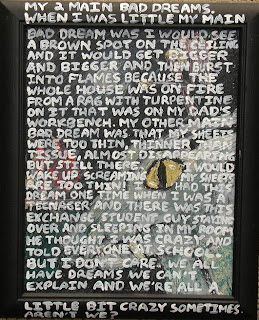 MY 2 MAIN BAD DREAMS.
WHEN I WAS LITTLE MY MAIN
BAD DREAM WAS I WOULD SEE
A BROWN SPOT ON THE CEILING
AND IT WOULD GET BIGGER
AND BIGGER AND THEN BURST
INTO FLAMES BECAUSE THE
WHOLE HOUSE WAS ON FIRE
FROM A RAG WITH TURPENTINE
ON IT THAT WAS ON MY DAD'S
WORKBENCH. MY OTHER MAIN
BAD DREAM WAS THAT MY SHEETS
WERE TOO THIN, THINNER THAN
TISSUE, ALMOST DISAPPEARING
BUT STILL THERE. I WOULD
WAKE UP SCREAMING MY SHEETS
ARE TOO THIN! I HAD THIS
DREAM ONE TIME WHEN I WAS A
TEENAGER AND THERE WAS THIS
EXCHANGE STUDENT GUY STAYING
OVER AND SLEEPING IN MY ROOM
HE THOUGHT I WAS CRAZY AND
TOLD EVERYONE AT SCHOOL.
BUT I DON'T CARE. WE ALL
HAVE DREAMS WE CAN'T
EXPLAIN AND WE'RE ALL A
LITTLE BIT CRAZY SOMETIMES
AREN'T WE?